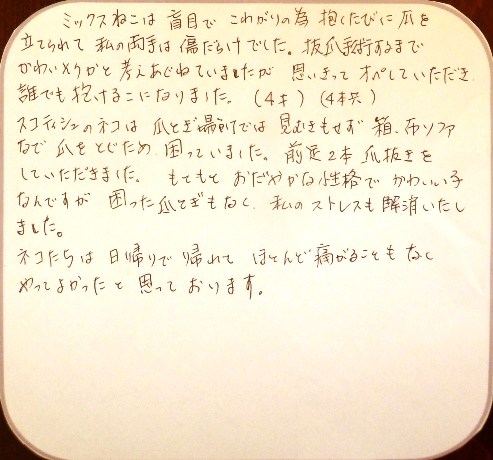 ミックスねこは 盲目で こわがりの為 抱くたびに爪を
立てられて 私の両手は 傷だらけでした。抜爪手術するまで
かわいそうかと 考えあぐねていましたが 思いきって オペしていただき
誰でも 抱けるこになりました。(4才) (4本共)
スコティッシュのネコは 爪とぎ場所では 見むきもせず 箱、布ソファ
などで 爪をとぐため 困っていました。前足2本 爪抜きを
していただきました。 もともと おだやかな性格で かわいい子
なんですが 困った爪とぎもなく、私のストレスも 解消いたし
ました。
ネコたちは 日帰りで帰れて ほとんど痛がることもなく
やってよかったと 思っております。